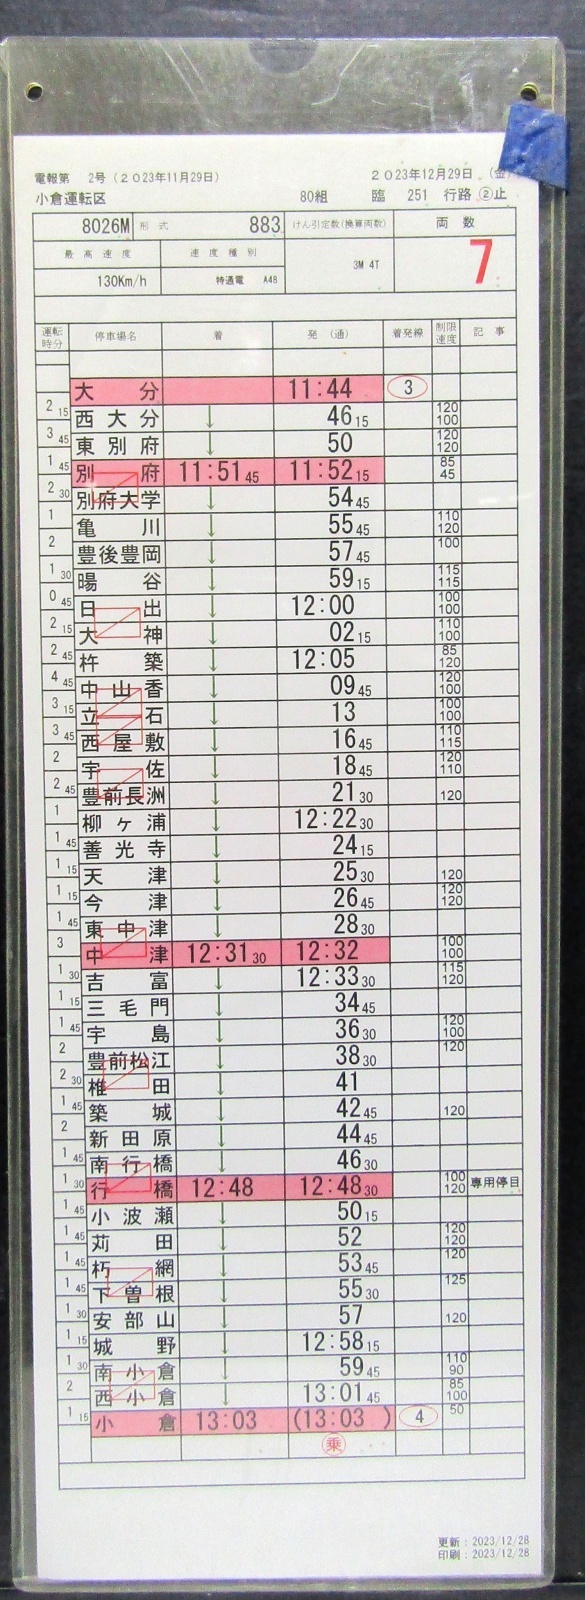 電報第 2号(2023年11月29日) 2023年12月29日 (金)
小倉運転区 80組 臨 251 行路 ②止
8026M 形式 883 けん引定数(換算両数) 両数
最高速度 速度種別 3M 4T 7
130Km/h 特通電 A48
運転時分 停車場名 着 発(通) 着発線 制限速度 記事
大分 11:44 3
2 15
西大分 ↓ 46 15 120 100
3 45
東別府 ↓ 50 120 120
1 45
別府 11:51 45 11:52 15 85 45
2 30
別府大学 ↓ 54 45
1
亀川 ↓ 55 45 110 120
2
豊後豊岡 ↓ 57 45 100
1 30
暘谷 ↓ 59 15 115 115
0 45
日出 ↓ 12:00 100 100
2 15
大神 ↓ 02 15 110 100
2 45
杵築 ↓ 12:05 85 120
4 45
中山香 ↓ 09 45 120 100
3 15
立石 ↓ 13 100 100
3 45
西屋敷 ↓ 16 45 110 115
2
宇佐 ↓ 18 45 120 110
2 45
豊前長洲 ↓ 21 30 120
1
柳ヶ浦 ↓ 12:22 30
1 45
善光寺 ↓ 24 15
1 15
天津 ↓ 25 30 120
1 15
今津 ↓ 26 45 120 120
1 45
東中津 ↓ 28 30
3
中津 12:31 30 12:32 100 100
1 30
吉富 ↓ 12:33 30 115 120
1 15
三毛門 ↓ 34 45
1 45
宇島 ↓ 36 30 120 100
2
豊前松江 ↓ 38 30 120
2 30
椎田 ↓ 41
1 45
築城 ↓ 42 45 120
2
新田原 ↓ 44 45
1 45
南行橋 ↓ 46 30
1 30
行橋 12:48 12:48 30 100 120 専用停目
1 45
小波瀬 ↓ 50 15
1 45
苅田 ↓ 52 120 120
1 45
朽網 ↓ 53 45 120
1 45
下曽根 ↓ 55 30 125
1 30
安部山 ↓ 57 120
1 15
城野 ↓ 12:58 15
1 30
南小倉 ↓ 59 45 110 90
2
西小倉 ↓ 13:01 45 85 100
1 15
小倉 13:03 (13:03 ) 4 50
乗
更新:2023/12/28
印刷:2023/12/28